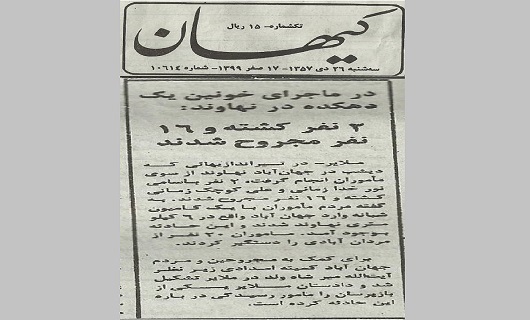 تکشماره- ۱۵ ریال
کیهان
سه‌شنبه ۲۶ دی ۱۳۵۷- ۱۷ صفر ۱۳۹۹- شماره ۱۰۶۱۴
در ماجرای خونین یک
دهکده در نهاوند:
۲ نفر کشته و ۱۶
نفر مجروح شدند
ملایر- در تیراندازیهائی که
دیشب در جهان‌آباد نهاوند از سوی
مأموران انجام گرفت، ۲ نفر باسامی
نور خدا زمانی و علی کوچک زمانی
کشته و ۱۶ نفر مجروح شدند. به
گفته مردم مأموران با یک کامیون
شبانه وارد جهان آباد واقع در ۶ کیلو
متری نهاوند شدند و این حادثه
بوجود آمد. مأموران ۳۰ نفر از
مردان آبادی را دستگیر کردند.
برای کمک به مجروحین و مردم
جهان آباد کمیته امدادی زیر نظر
آیت‌الله میر شاه ولد در ملایر تشکیل
شد و دادستان ملایر یکی از
بازپرسان را مأمور رسیدگی در باره
این حادثه کرده است.